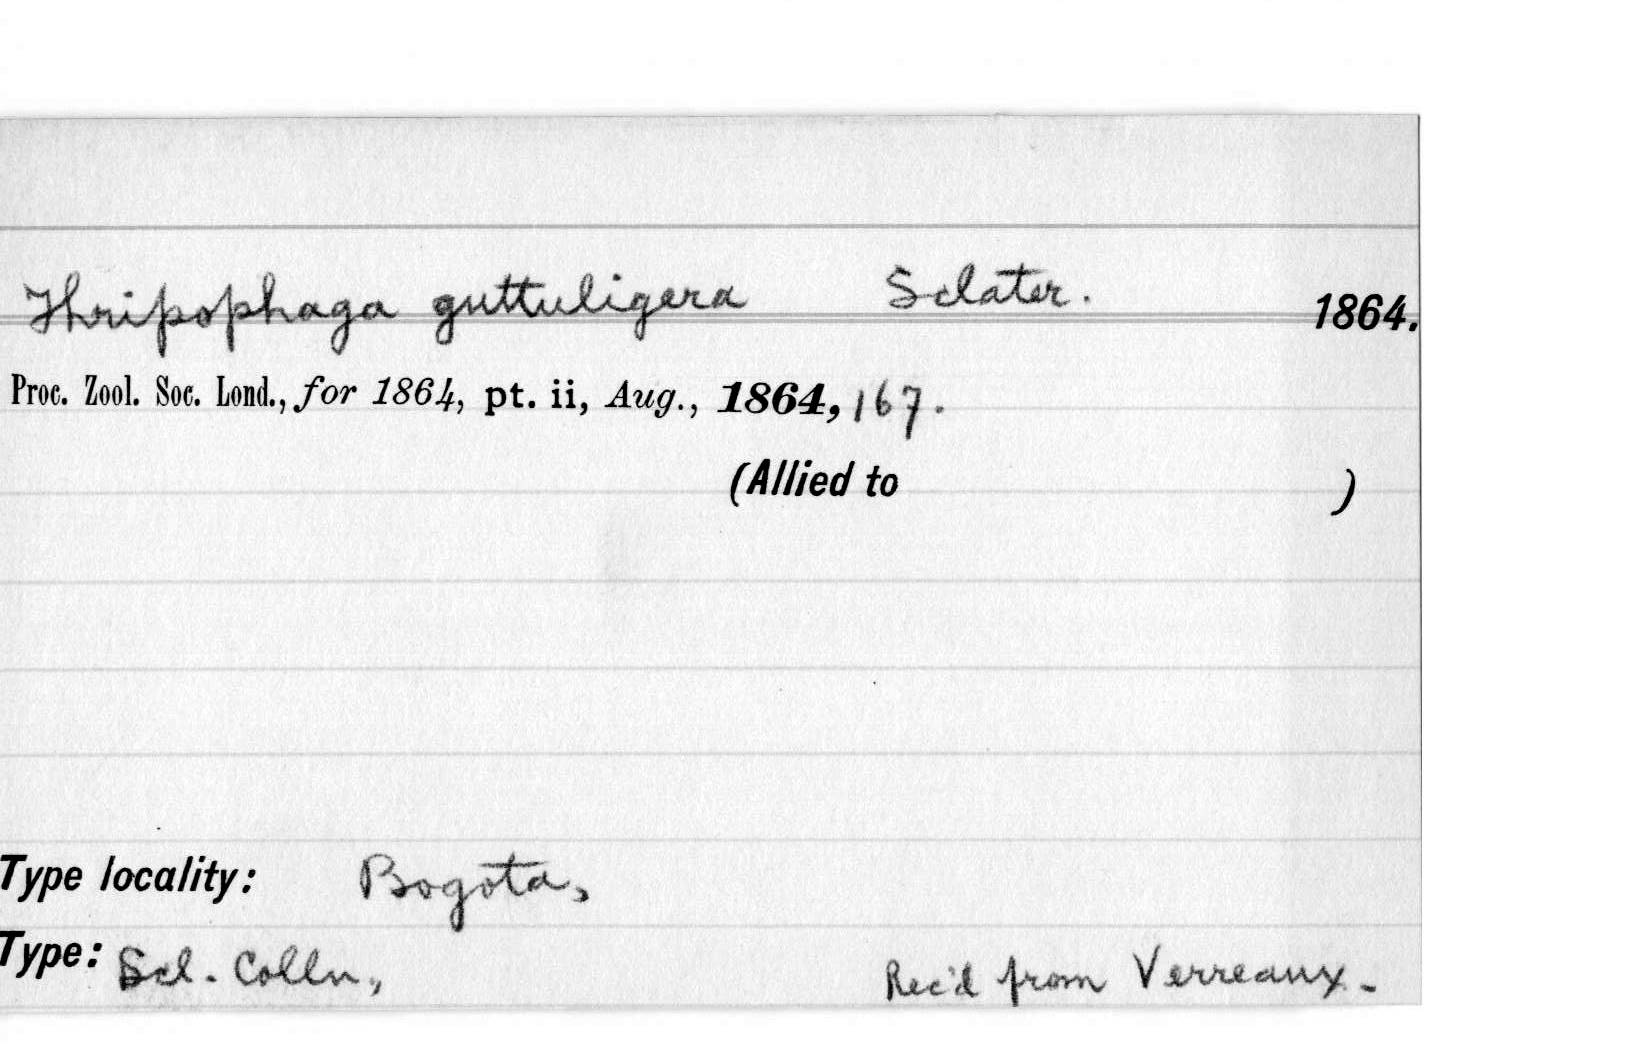 Thripophaga guttuligera Sclater. 1864.
Proc. Zool. Soc. Lond., for 1864, pt. ii, Aug., 1864, 167.
(Allied to )
Type locality: Bogota,
Type: Scl. Colln, Rec'd from Verreaux.